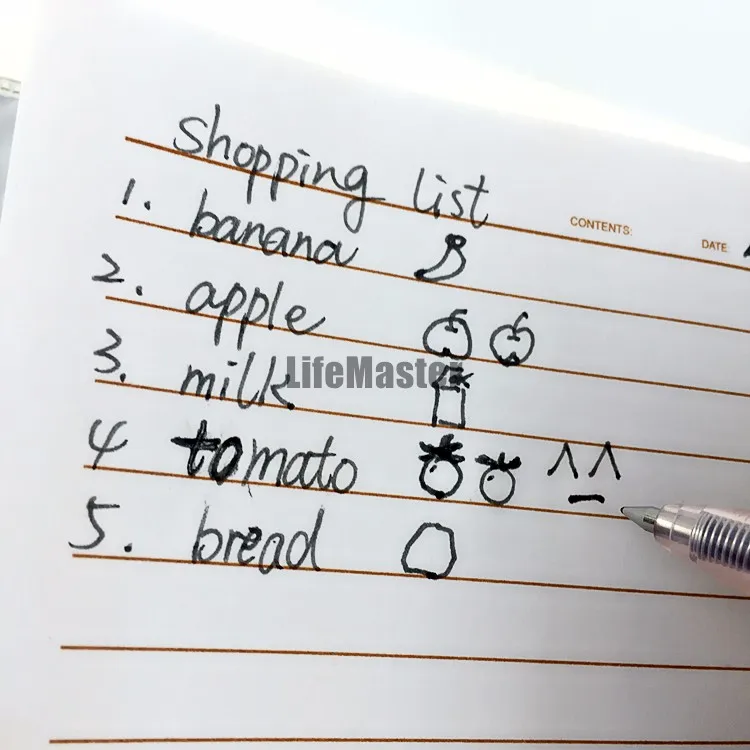 shopping list
CONTENTS:
DATE:
1. banana
2. apple
3. milk
LifeMaster
4 tomato
5. bread